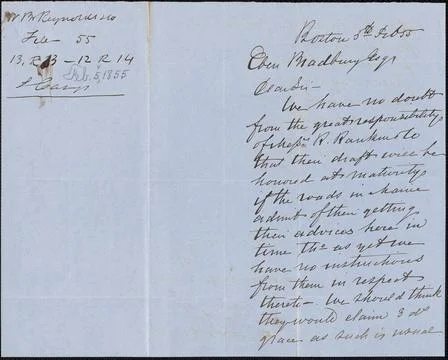 W B Reynolds & Co
Feb 55
13. R 13 – 12 R 14
Feb. 5, 1855
Boston 5th Feb 55
Eben Bradbury Esqr
Dear Sir –
We have no doubt
from the great responsibility
of Messrs R. Rankin & Co
that their draft will be
honored at maturity
if the roads in Maine
admit of their getting
their advices here in
time tho as yet we
have no instructions
from them in respect
thereto – We should think
they would claim 3 ds
grace as such is usual